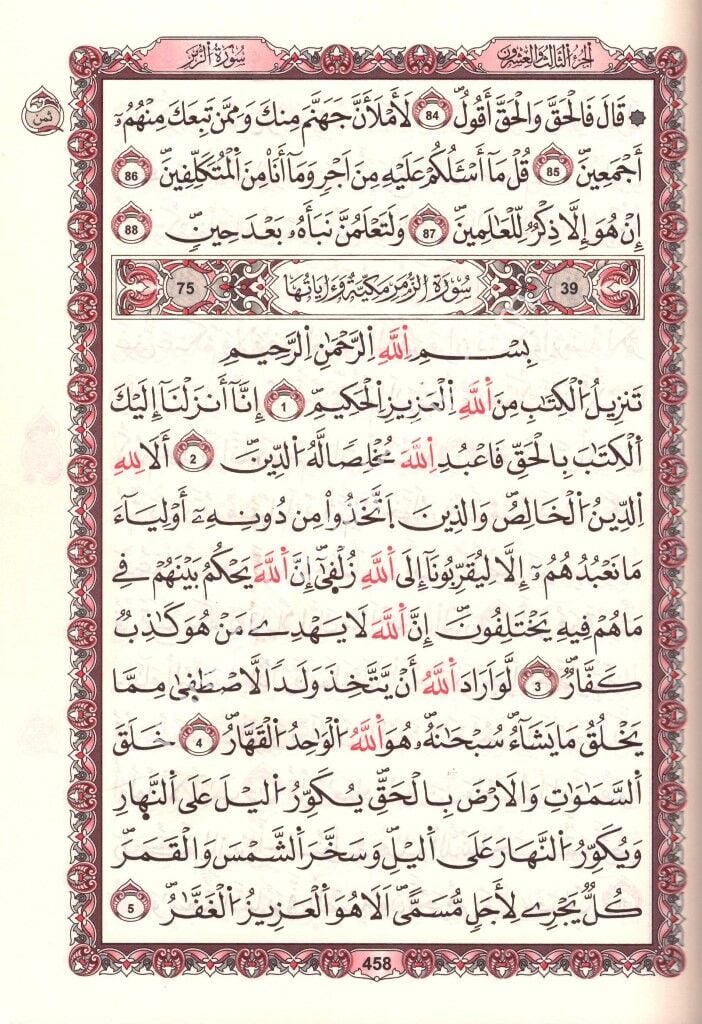 الجزء الثالث والعشرون
سورة الزمر
ثمن
۞ قَالَ فَالْحَقَّ وَالْحَقَّ أَقُولُ 84 لَأَمْلَأَنَّ جَهَنَّمَ مِنكَ وَمِمَّن تَبِعَكَ مِنْهُمُۥ
أَجْمَعِينَ 85 قُلْ مَآ أَسْـَٔلُكُمْ عَلَيْهِ مِنَ اَجْرٍ وَمَآ أَنَا مِنَ اَ۬لْمُتَكَلِّفِينَ 86
إِنْ هُوَ إِلَّا ذِكْرٌ لِّلْعَٰلَمِينَ 87 وَلَتَعْلَمُنَّ نَبَأَهُۥ بَعْدَ حِينٍ 88
39 سورة الزمر مكية وءاياتها 75
بِسْمِ اِ۬للَّهِ اِ۬لرَّحْمَٰنِ اِ۬لرَّحِيمِ
تَنزِيلُ اُ۬لْكِتَٰبِ مِنَ اَ۬للَّهِ اِ۬لْعَزِيزِ اِ۬لْحَكِيمِ 1 إِنَّآ أَنزَلْنَآ إِلَيْكَ
اَ۬لْكِتَٰبَ بِالْحَقِّ فَاعْبُدِ اِ۬للَّهَ مُخْلِصًا لَّهُ اُ۬لدِّينَ 2 أَلَا لِلهِ
اِ۬لدِّينُ اُ۬لْخَالِصُ وَالذِينَ اَ۪تَّخَذُواْ مِن دُونِهِۦٓ أَوْلِيَآءَ
مَا نَعْبُدُهُمُۥٓ إِلَّا لِيُقَرِّبُونَآ إِلَى اَ۬للَّهِ زُلْف۪ىٰٓ إِنَّ اَ۬للَّهَ يَحْكُمُ بَيْنَهُمْ فِے
مَا هُمْ فِيهِ يَخْتَلِفُونَ إِنَّ اَ۬للَّهَ لَا يَهْدِے مَنْ هُوَ كَٰذِبٌ
كَفَّارٌ 3 لَّوَ اَرَادَ اَ۬للَّهُ أَنْ يَّتَّخِذَ وَلَدًا لَّاصْطَف۪ىٰ مِمَّا
يَخْلُقُ مَا يَشَآءُ سُبْحَٰنَهُۥ هُوَ اَ۬للَّهُ اُ۬لْوَٰحِدُ اُ۬لْقَهَّارُ 4 خَلَقَ
اَ۬لسَّمَٰوَٰتِ وَالَارْضَ بِالْحَقِّ يُكَوِّرُ اُ۬ليْلَ عَلَى اَ۬لنَّه۪ارِ
وَيُكَوِّرُ اُ۬لنَّهَارَ عَلَى اَ۬ليْلِ وَسَخَّرَ اَ۬لشَّمْسَ وَالْقَمَرَ
كُلٌّ يَجْرِے لِأَجَلٍ مُّسَمًّى اَلَا هُوَ اَ۬لْعَزِيزُ اُ۬لْغَفَّٰرُ 5
458